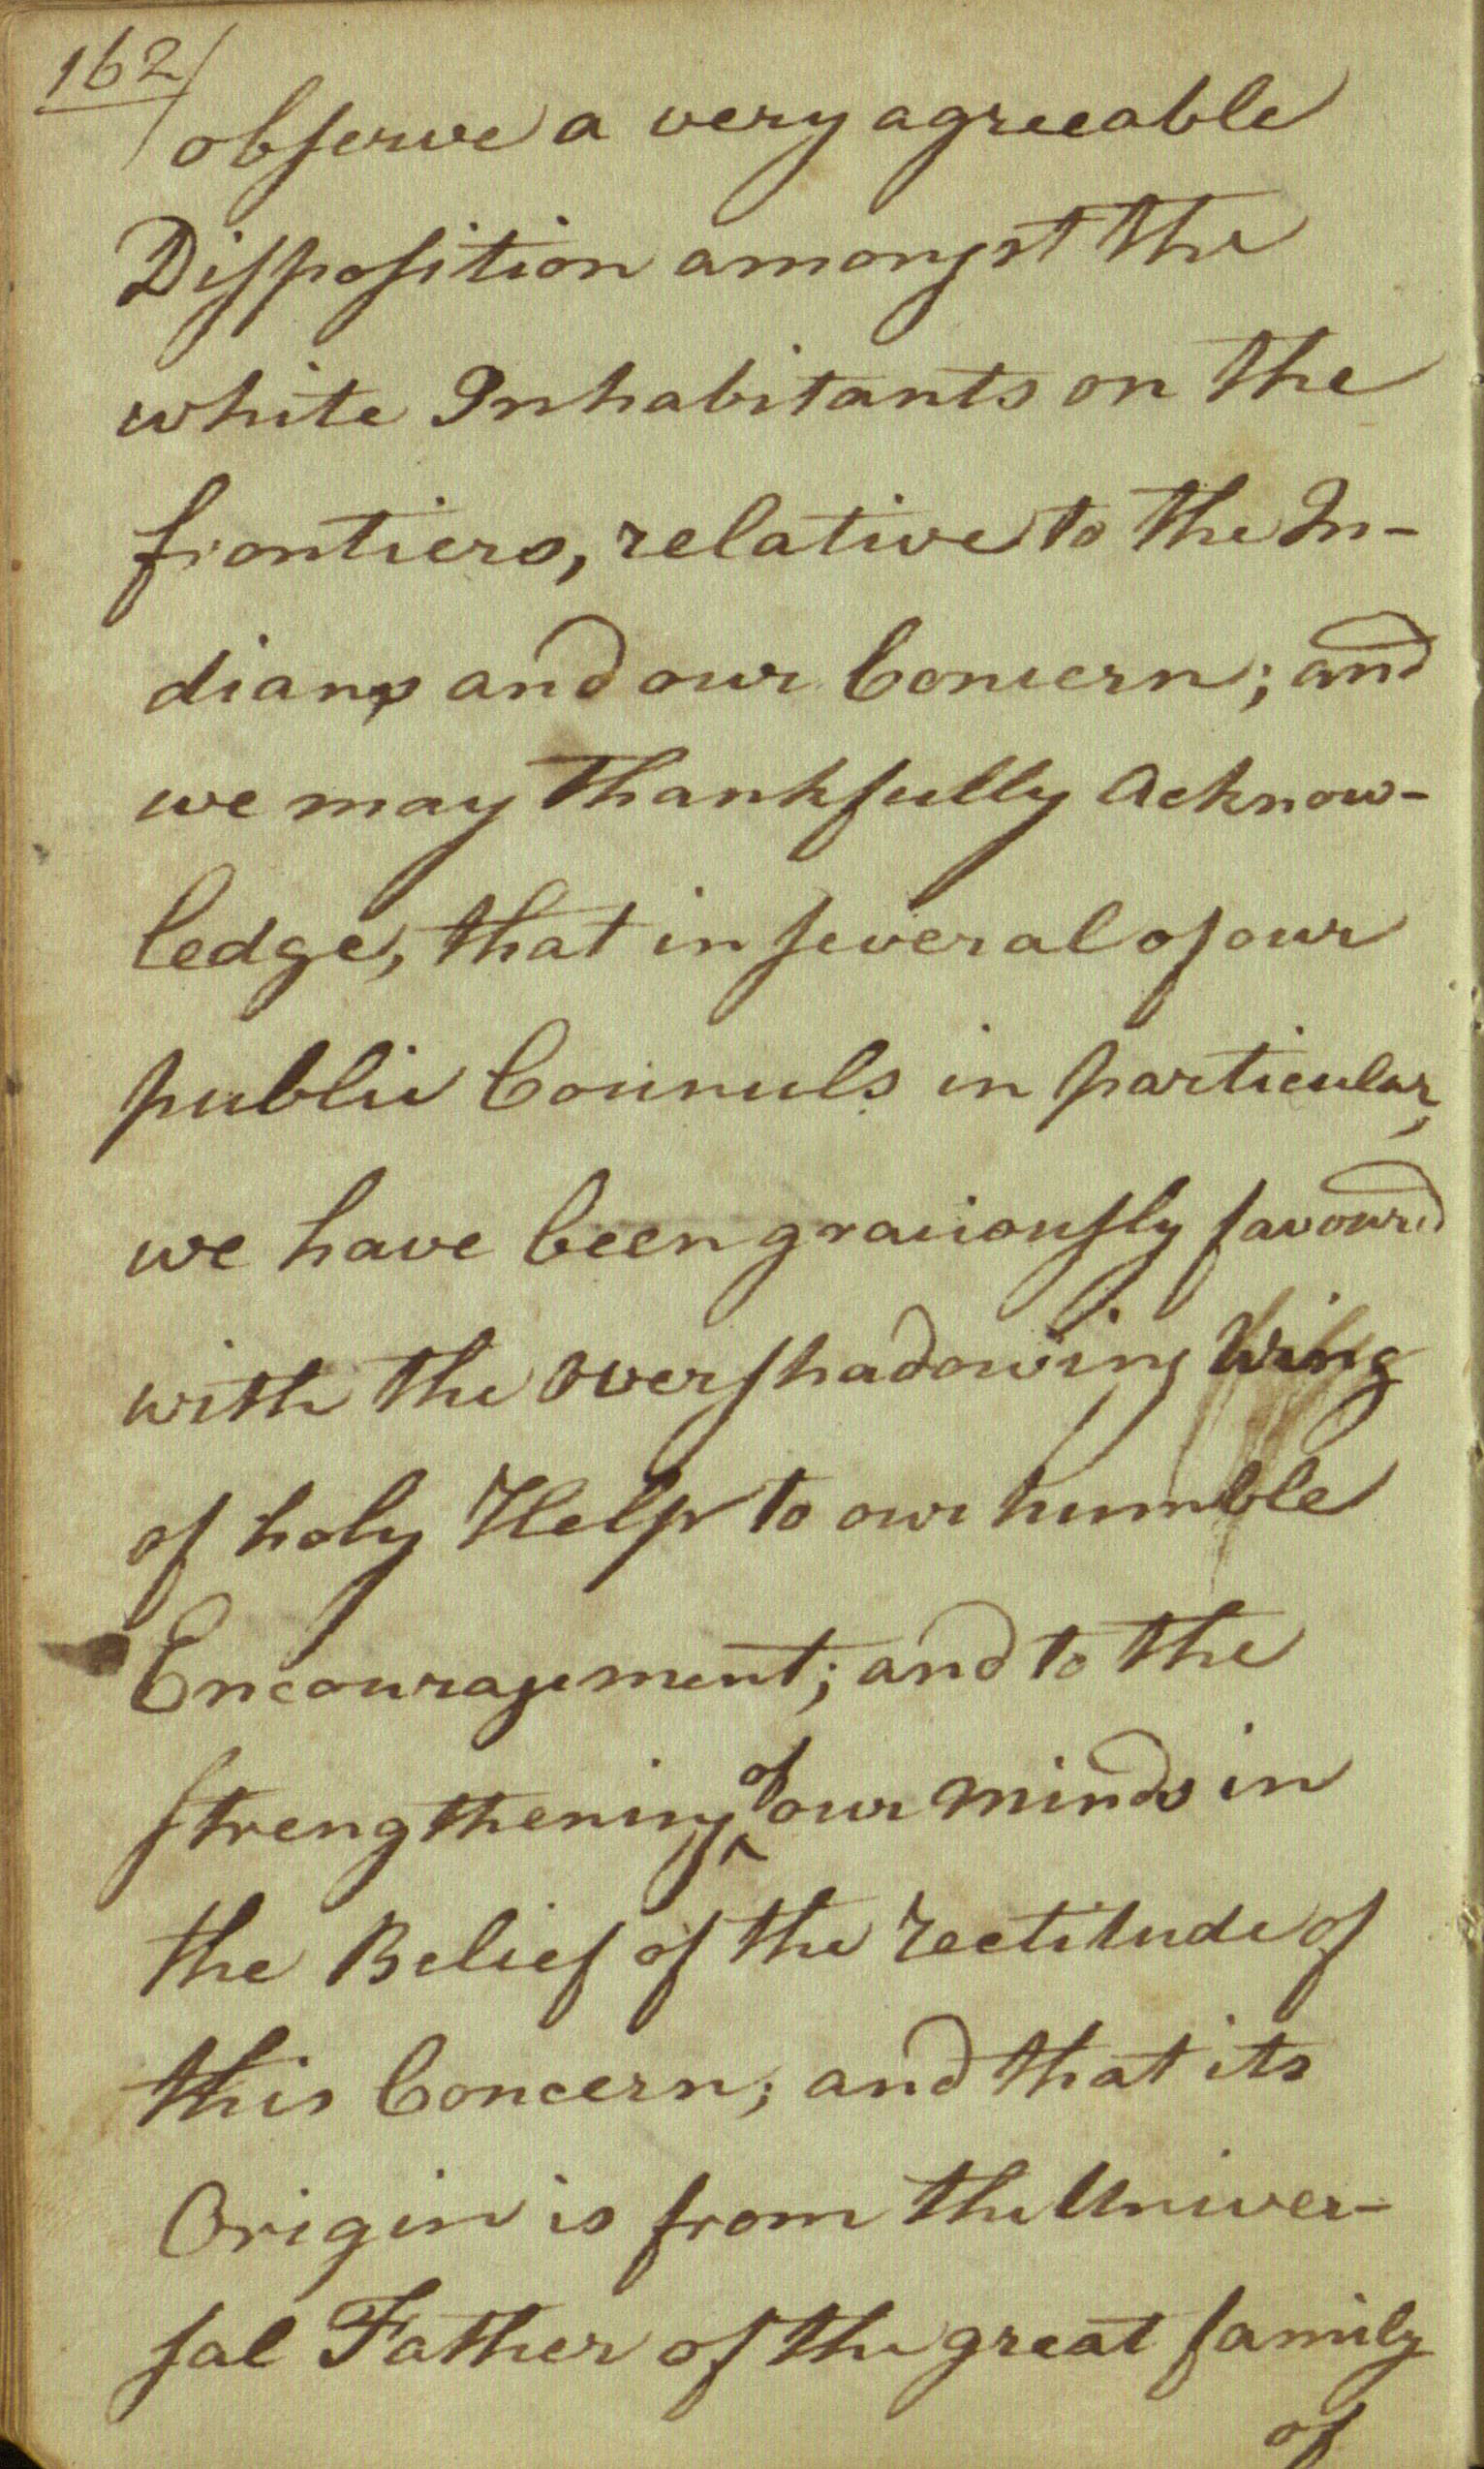 162
observe a very agreeable
Disposition amongst the
white Inhabitants on the
frontiers, relative to the In-
dians and our Concern; and
we may thankfully Acknow-
ledge, that in several of our
public Councils in particular,
we have been graciously favoured
with the Overshadowing Wing
of holy Help to our humble
Encouragement; and to the
strengthening of our minds in
the Belief of the rectitude of
this Concern; and that its
Origin is from the Univer-
sal Father of the great family
of